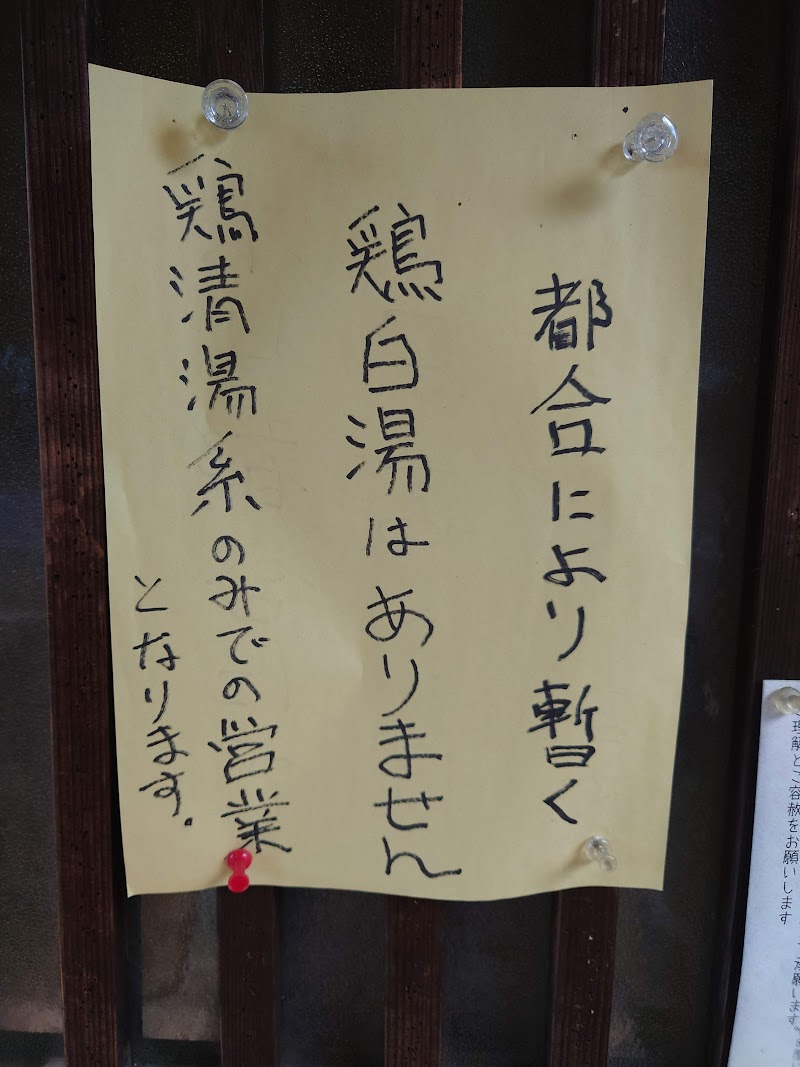 都合により暫く
鶏白湯はありません
鶏清湯系のみでの営業
となります.
理解とご容赦をお願いします
願います